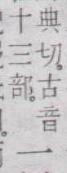 典切。古音一
十三部。